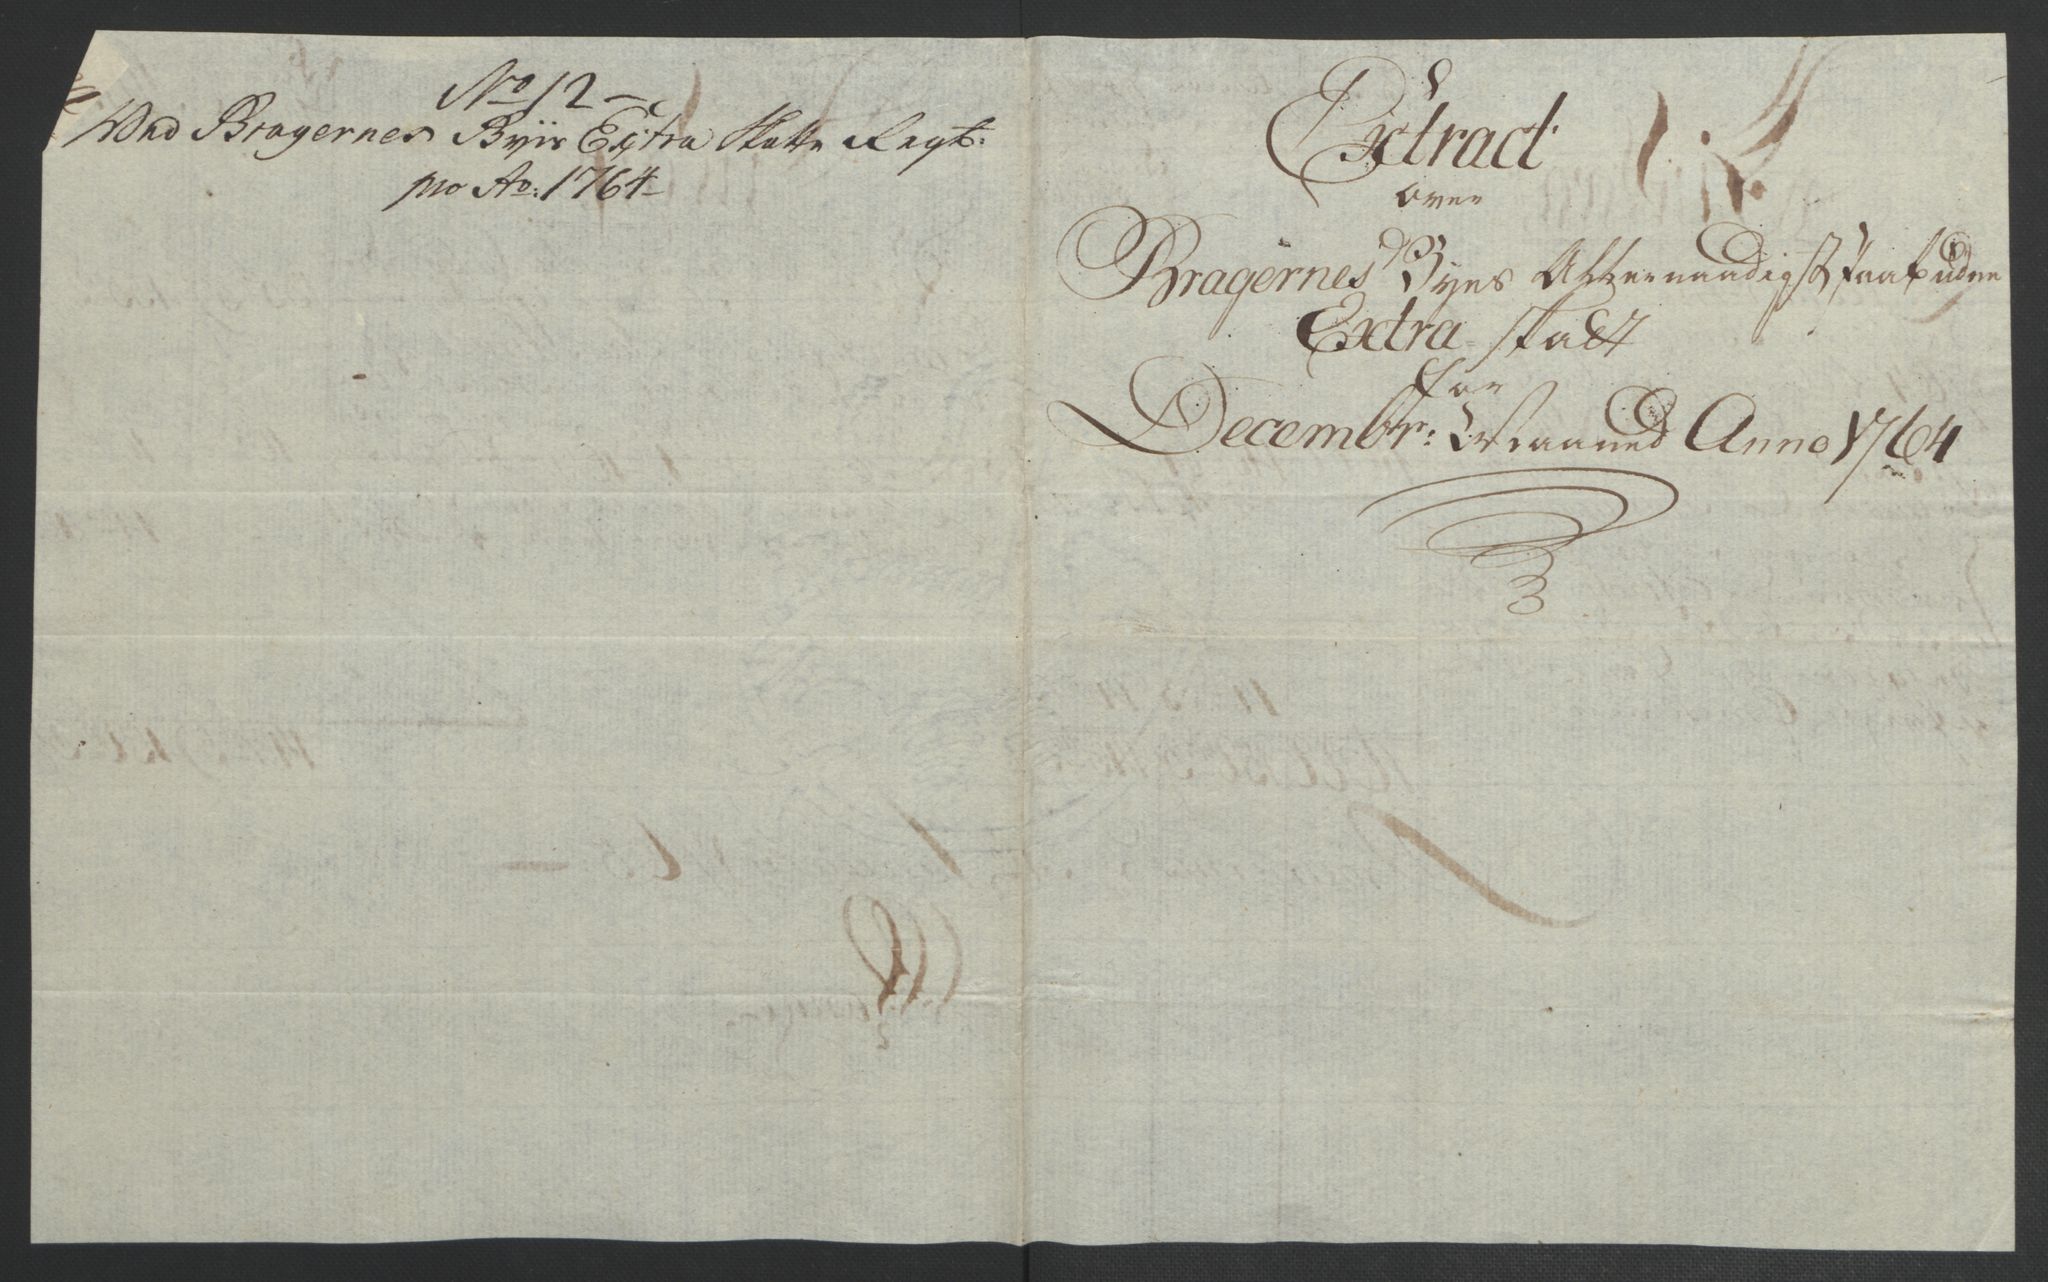 No 12 –
Ved Bragernes Byes Extra Skatte Regt:
pro Ao: 1764
Extract
over
Bragernes Byes Allernaadigst paabudne
Extra skatt
for
Decembr: Maaned Anno 1764